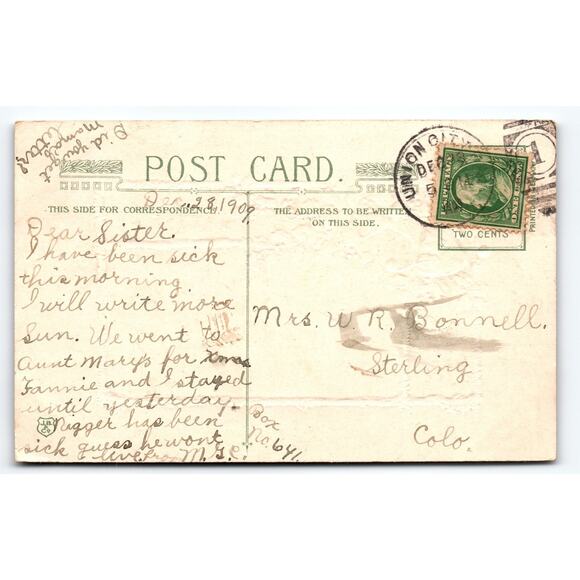 Did you get
Mama's
letter?
POST CARD.
Dec. 28, 1909
THIS SIDE FOR CORRESPONDENCE
THE ADDRESS TO BE WRITTEN
ON THIS SIDE.
UNION CITY
DEC
ONE CENT
TWO CENTS
PRINTED
1
Dear Sister.
I have been sick
this morning
I will write more
Sun. We went to
Aunt Marys for Xmas
Fannie and I stayed
until yesterday.
Nigger has been
sick guess he wont
live from M.G.C.
Mrs. W. R. Bonnell.
Sterling
Colo.
Box
No 641.